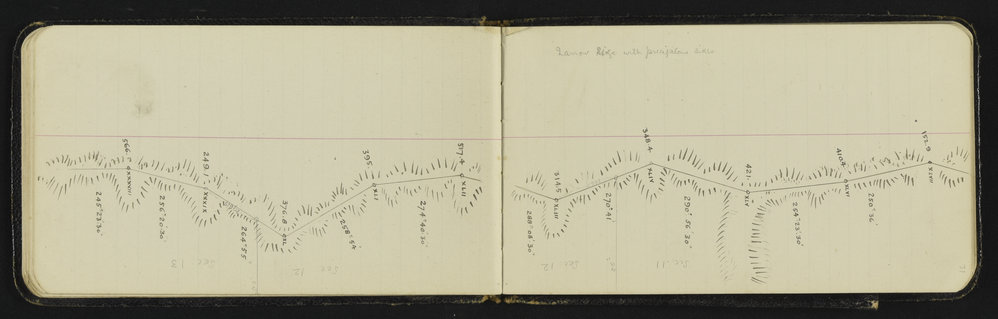 Narrow Ridge with precipitous sides
566.7
XXXVIII
245° 23' 30"
249.1
XXXIX
256° 20' 30
376.8
XL
264° 55'
395
XLI
258° 54'
577.4
XLII
274° 40' 30"
314.5
XLIII
288° 08' 30"
348.4
XLIV
270° 41'
421.
XLV
290° 56' 30"
410.4
XLVI
264° 23' 30"
152.9
XLVII
250° 36'
Sec. 13
Sec. 12
Sec. 12
Sec. 11